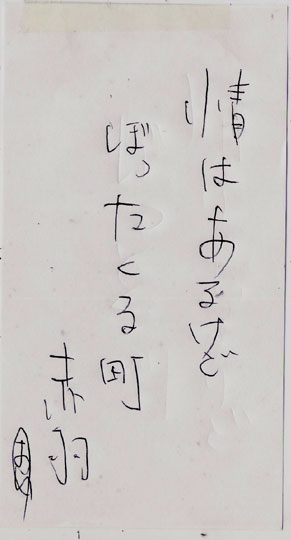 情はあるけど
ぼったくる町
赤羽